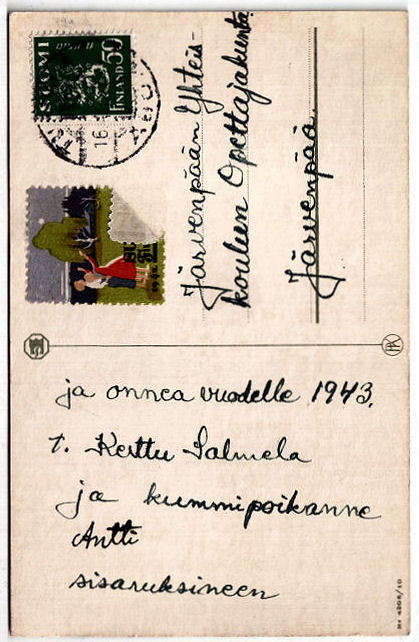 SUOMI
FINLAND
50
16
ABO
Järvenpään Yhteis-
koulun Opettajakunta
Järvenpää.
ja onnea vuodelle 1943.
T. Kerttu Salmela
ja kummipoikanne
Antti
sisaruksineen